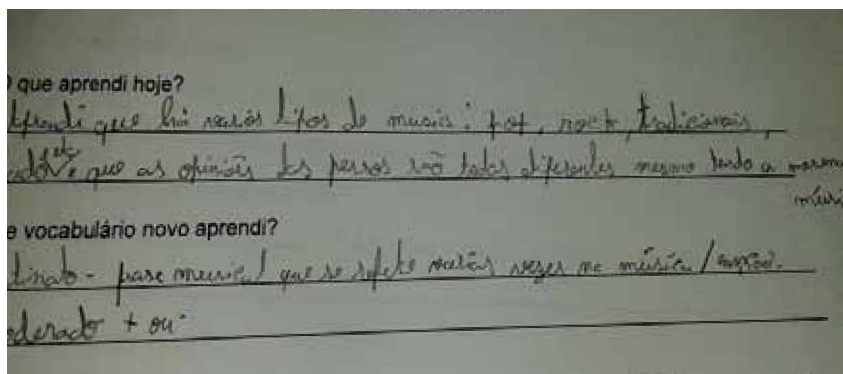 que aprendi hoje?
Aprendi que há varios tipos de musica: pop, rock, tradicionais,
etc
e que as opiniões das pessoas são todas diferentes mesmo tendo a mesma
músi
e vocabulário novo aprendi?
tinato - frase musical que se repete varias vezes na música/canção.
oderado + ou -